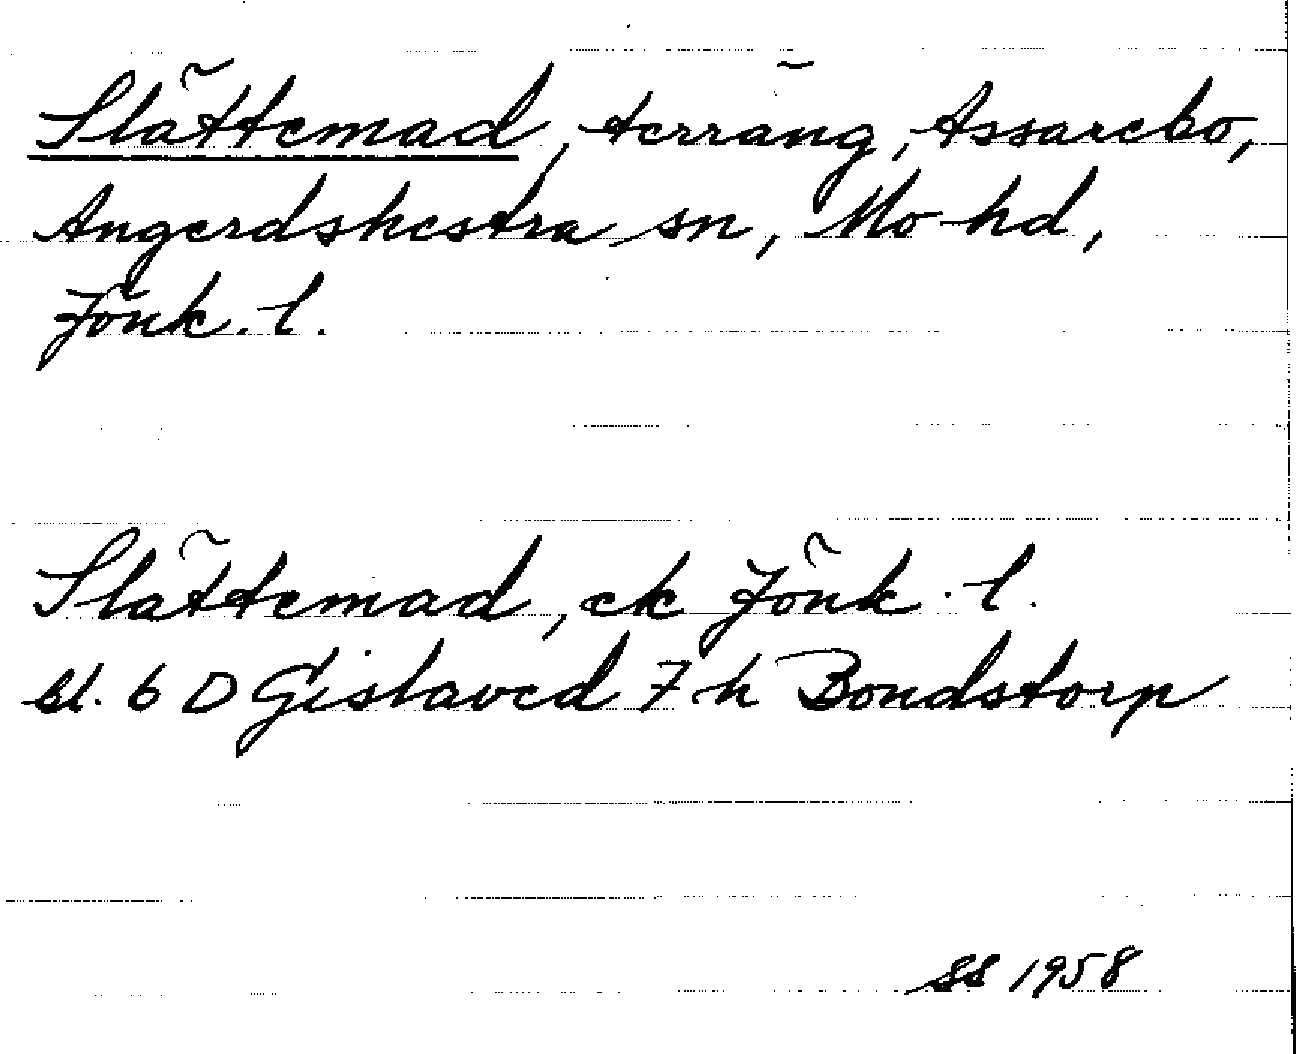 Slättemad, terräng, Assarebo,
Angerdshestra sn, Mo hd,
Jönk. l.
Slättemad, ek Jönk. l.
bl. 6 D Gislaved 7 h Bondstorp
SS 1958